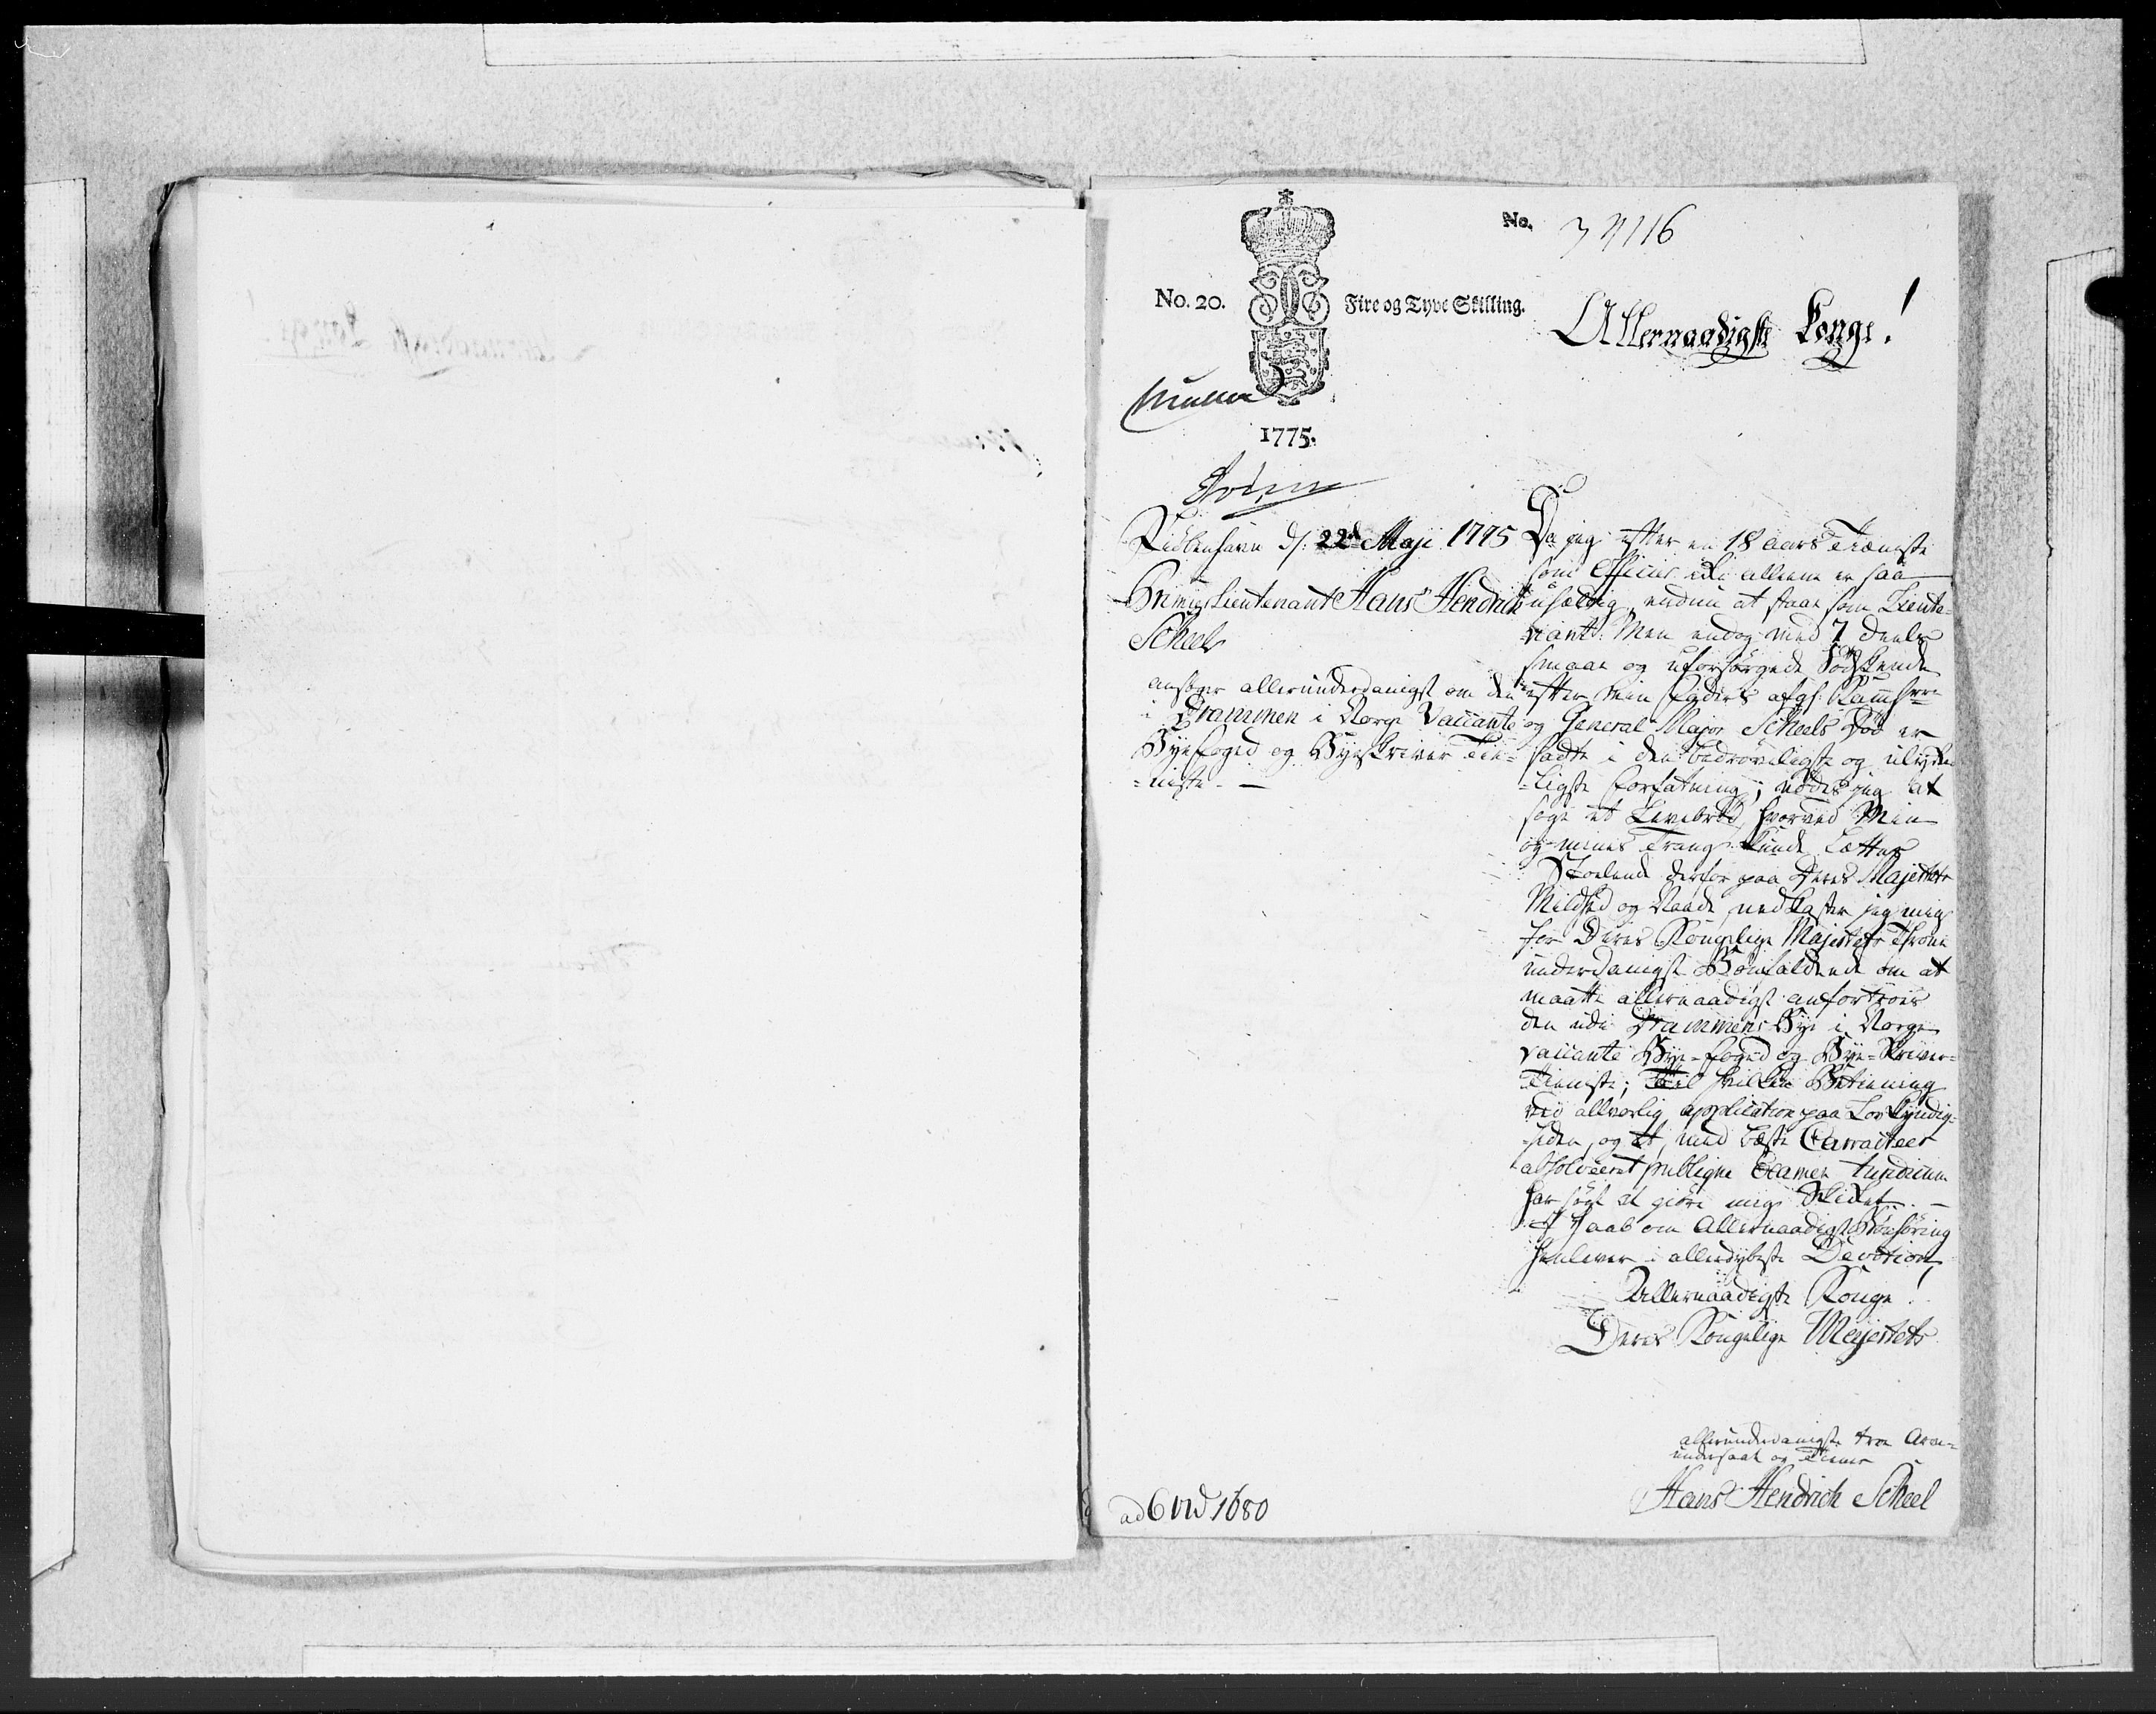 No. 34116
No. 20. Fire og Tyve Skilling.
Allernaadigste Konge!
1775.
Kiöbenhavn d: 22d Maji 1775
Premier Lieutenant Hans Hendrich
Scheel
ansöger allerunderdanigst om den
i Drammen i Norge Vaccante
Byefoged og Byeskriver Tie-
-niste. —
Da jeg efter en 18 aars Tieneste
som Officier ikke alleene er saa
uheldig, endnu at staae som Lieute-
nant: Men endog med 7 deels
smaae og uforsörgede Södskende
efter min Faders afg: Kamherre
og General-Major Scheels Död er
sadt i den bedröveligste og ulyke-
-ligste Forfatning; nödes jeg at
söge et Levebröd, hvorved Min
og mines Trang kunde Lettes
Stolende derfor paa Deres Majestets
Mildhed og Naade, nedkaster jeg mig
for Deres Kongelige Majestets Throne
underdanigst Bönfaldende om at
maatte allernaadigst anfortroes
den udi Drammens Bye i Norge
vaccante Bye-foged og Bye-Skriver-
Tieneste; Til hvilken Betiening
ved allvorlig application paa Lovkyndig-
-heden, og et, med beste Carracteer
absolveret publique Examen Juridicum
har sögt at giöre mig Skicket. —
I Haab om Allernaadigst Bönhöring
henlever i allerdybeste Devotion
Allernaadigste Konge!
Deres Kongelige Mayestets
allerunderdanigste troe Arve-
undersaat og Tiener
Hans Hendrich Scheel
ad 6 1680